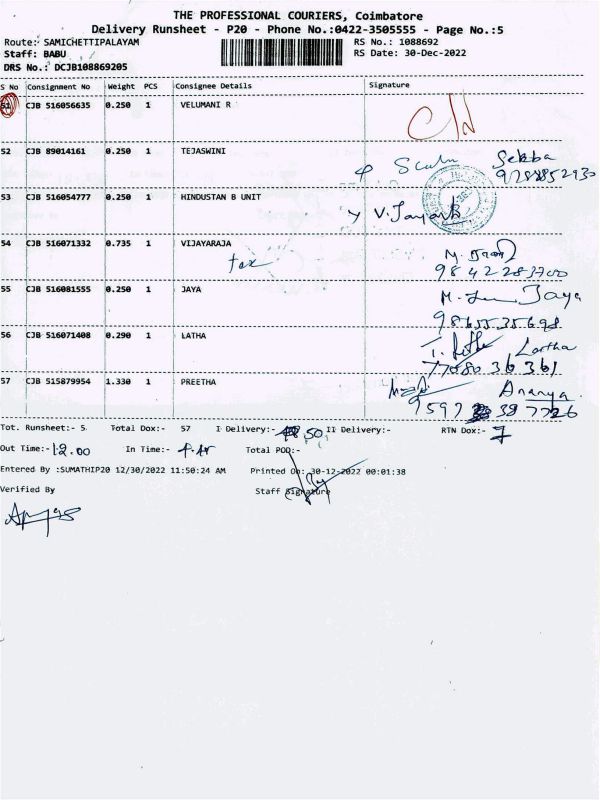 THE PROFESSIONAL COURIERS, Coimbatore
Delivery Runsheet - P20 - Phone No.:0422-3505555 - Page No.:5
Route: SAMICHETTIPALAYAM RS No.: 1088692
Staff: BABU RS Date: 30-Dec-2022
DRS No.: DCJB108869205
S No Consignment No Weight PCS Consignee Details Signature
51 CJB 516056635 0.250 1 VELUMANI R
52 CJB 89014161 0.250 1 TEJASWINI
53 CJB 516054777 0.250 1 HINDUSTAN B UNIT
54 CJB 516071332 0.735 1 VIJAYARAJA
9842283700
55 CJB 516081555 0.250 1 JAYA Jaya
9865535698
56 CJB 516071408 0.290 1 LATHA Lartha
77080 36361
57 CJB 515879954 1.330 1 PREETHA Ananya
9597 397726
Tot. Runsheet:- 5 Total Dox:- 57 I Delivery:- 50 II Delivery:- RTN Dox:- 7
Out Time:- 12.00 In Time:- Total POD:-
Entered By :SUMATHIP20 12/30/2022 11:50:24 AM Printed On: 30-12-2022 00:01:38
Verified By Staff Signature